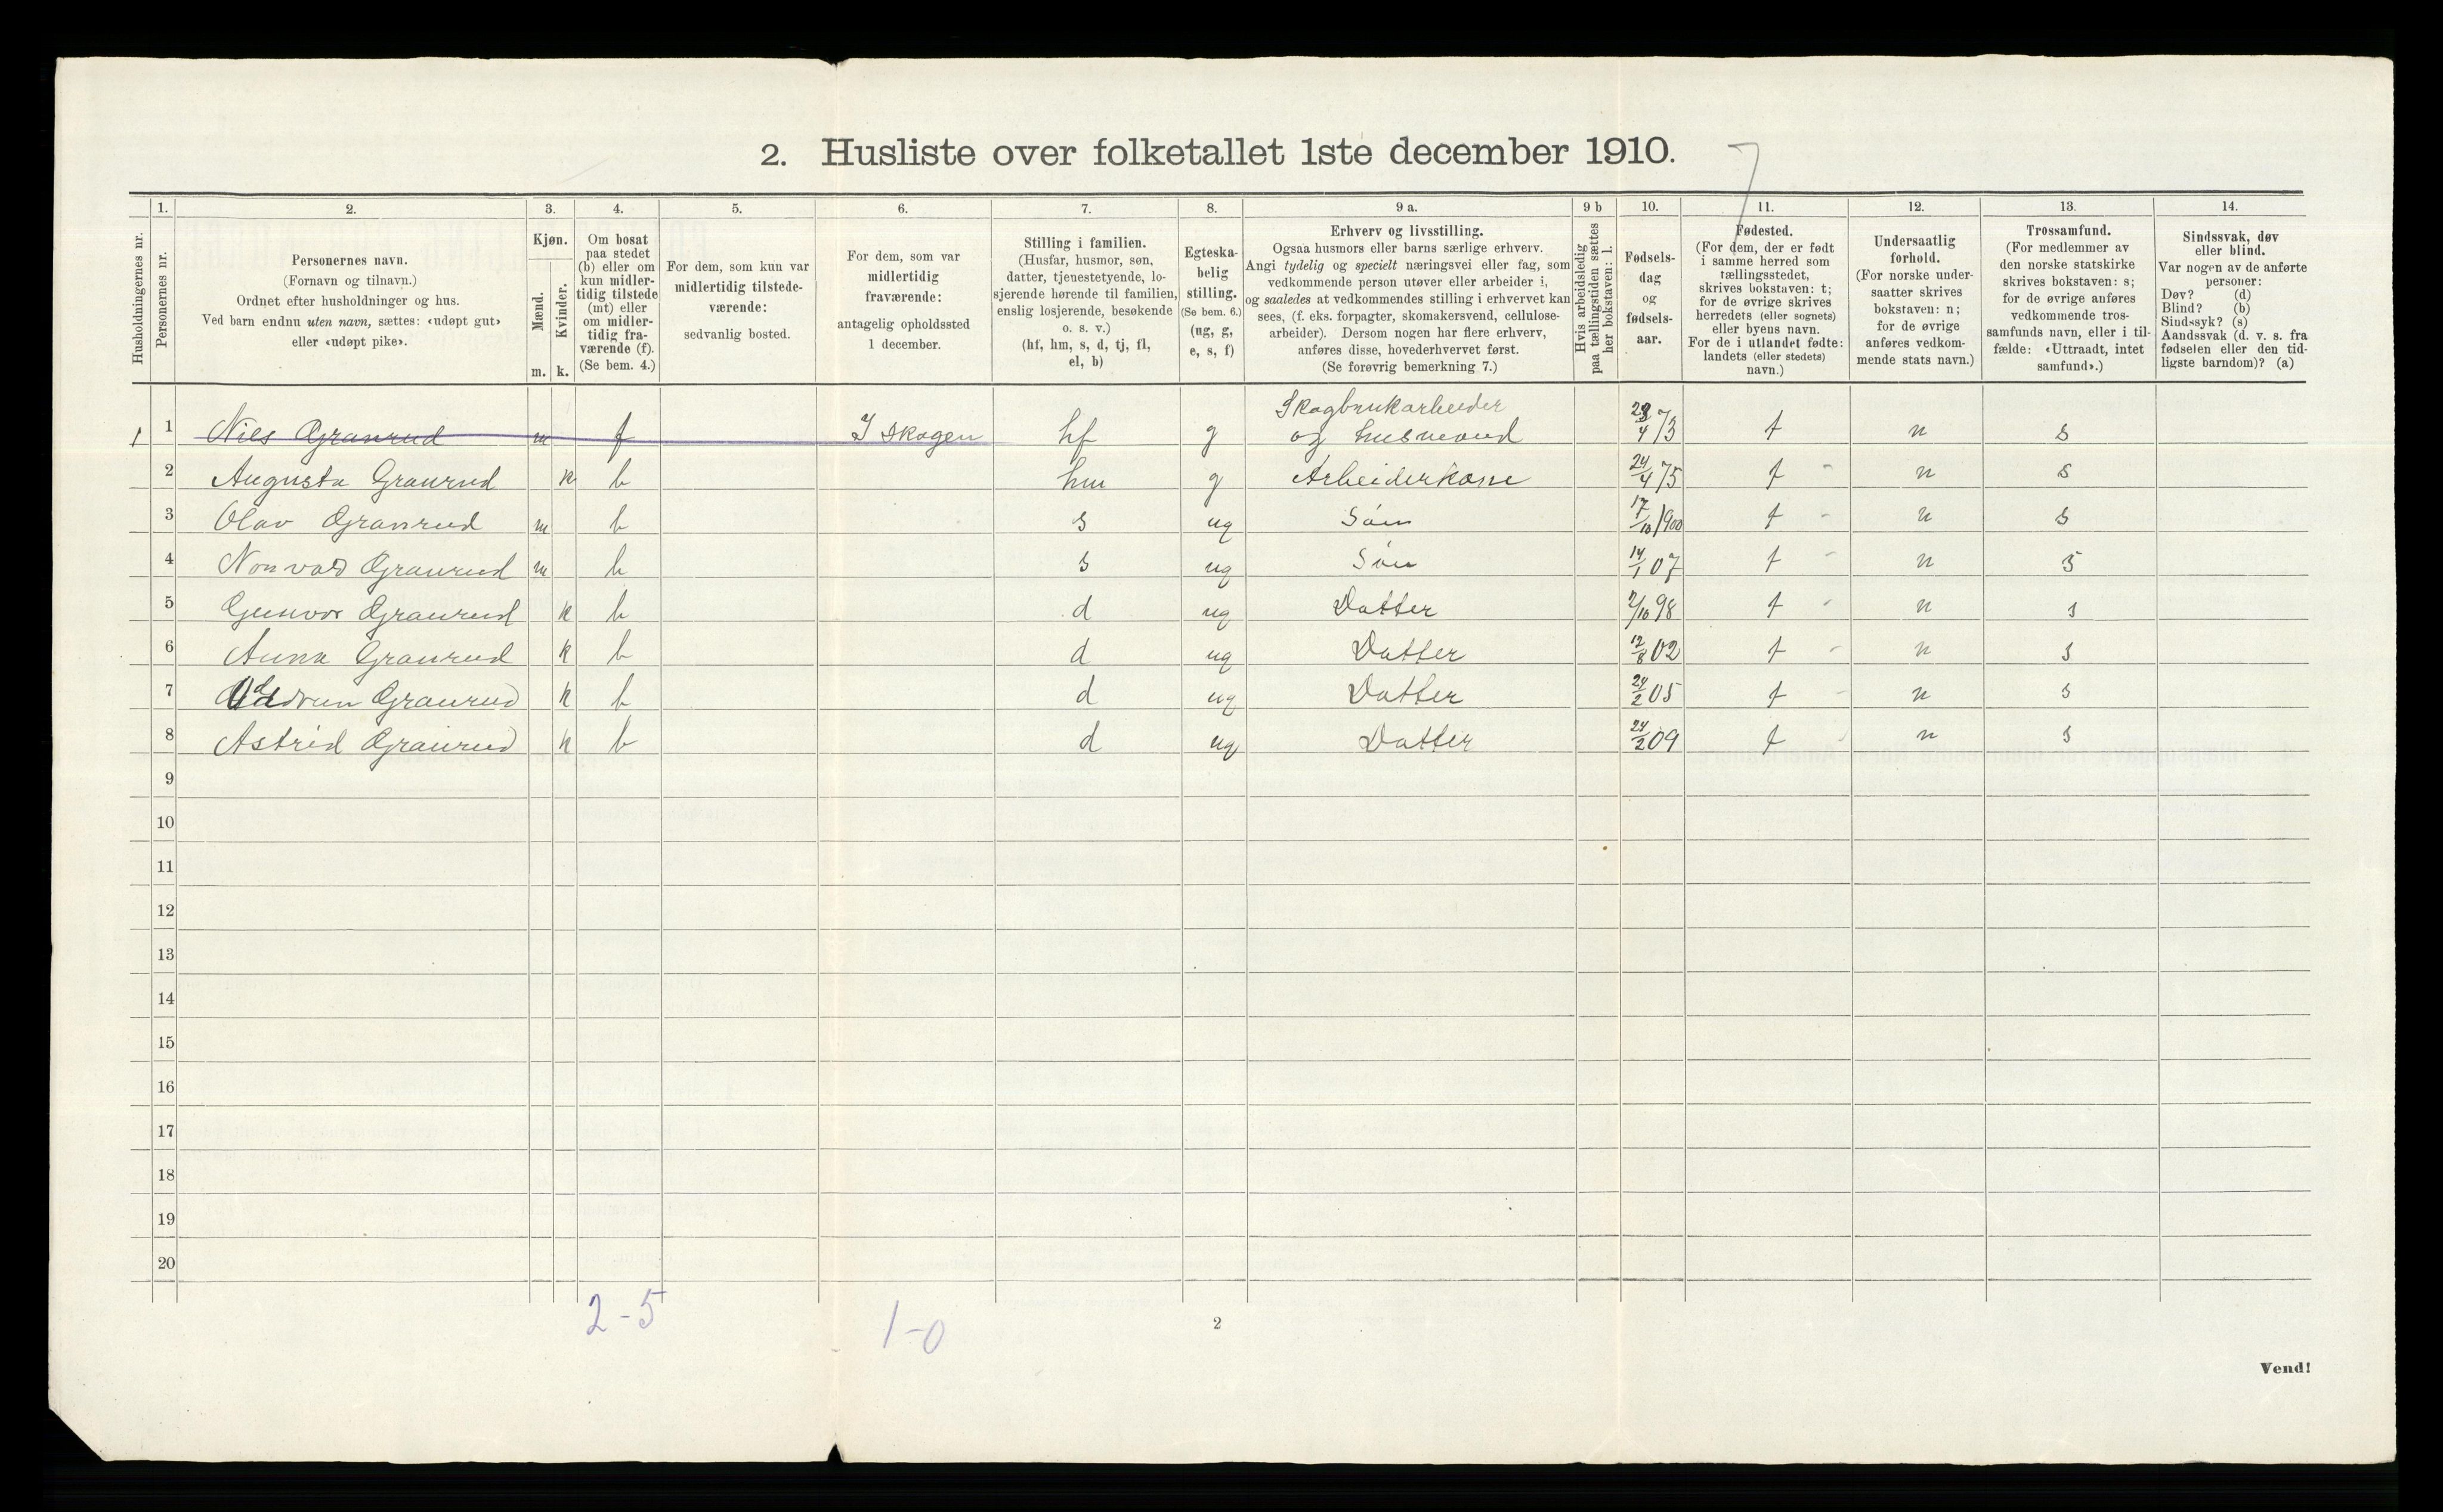 2. Husliste over folketallet 1ste december 1910.
7
Husholdningernes nr.
1. Personernes nr.
2. Personernes navn.
(Fornavn og tilnavn.)
Ordnet efter husholdninger og hus.
Ved barn endnu uten navn, sættes: «udøpt gut»
eller «udøpt pike».
3. Kjøn.
Mænd. m.
Kvinder. k.
4. Om bosat
paa stedet
(b) eller om
kun midler-
tidig tilstede
(mt) eller
om midler-
tidig fra-
værende (f).
(Se bem. 4.)
5. For dem, som kun var
midlertidig tilstede-
værende:
sedvanlig bosted.
6. For dem, som var
midlertidig
fraværende:
antagelig opholdssted
1 december.
7. Stilling i familien.
(Husfar, husmor, søn,
datter, tjenestetyende, lo-
sjerende hørende til familien,
enslig losjerende, besøkende
o. s. v.)
(hf, hm, s, d, tj, fl,
el, b)
8. Egteska-
belig
stilling.
(Se bem. 6.)
(ug, g,
e, s, f)
9 a. Erhverv og livsstilling.
Ogsaa husmors eller barns særlige erhverv.
Angi tydelig og specielt næringsvei eller fag, som
vedkommende person utøver eller arbeider i,
og saaledes at vedkommendes stilling i erhvervet kan
sees, (f. eks. forpagter, skomakersvend, cellulose-
arbeider). Dersom nogen har flere erhverv,
anføres disse, hovederhvervet først.
(Se forøvrig bemerkning 7.)
9 b Hvis arbeidsledig
paa tællingstiden sættes
her bokstaven: l.
10. Fødsels-
dag
og
fødsels-
aar.
11. Fødested.
(For dem, der er født
i samme herred som
tællingsstedet,
skrives bokstaven: t;
for de øvrige skrives
herredets (eller sognets)
eller byens navn.
For de i utlandet fødte:
landets (eller stedets)
navn.)
12. Undersaatlig
forhold.
(For norske under-
saatter skrives
bokstaven: n;
for de øvrige
anføres vedkom-
mende stats navn.)
13. Trossamfund.
(For medlemmer av
den norske statskirke
skrives bokstaven: s;
for de øvrige anføres
vedkommende tros-
samfunds navn, eller i til-
fælde: «Uttraadt, intet
samfund».)
14. Sindssvak, døv
eller blind.
Var nogen av de anførte
personer:
Døv? (d)
Blind? (b)
Sindssyk? (s)
Aandssvak (d. v. s. fra
fødselen eller den tid-
ligste barndom)? (a)
Skogbrukarbeider
1 1 Nils Granrud m f I Skogen hf g og husmand 23/4 73 t n s
2 Augusta Granrud k b hm g Arbeiderkone 24/4 75 t - n s
3 Olav Granrud m b s ug Søn 17/10 1900 t - n s
4 Norvald Granrud m b s ug Søn 14/1 07 t - n s
5 Gunvor Granrud k b d ug Datter 2/10 98 t - n s
6 Anna Granrud k b d ug Datter 12/8 02 t - n s
7 Granrud k b d ug Datter 24/2 05 t - n s
8 Astrid Granrud k b d ug Datter 24/2 09 t - n s
9
10
11
12
13
14
15
16
17
18
19
20
2-5 1-0
2
Vend!